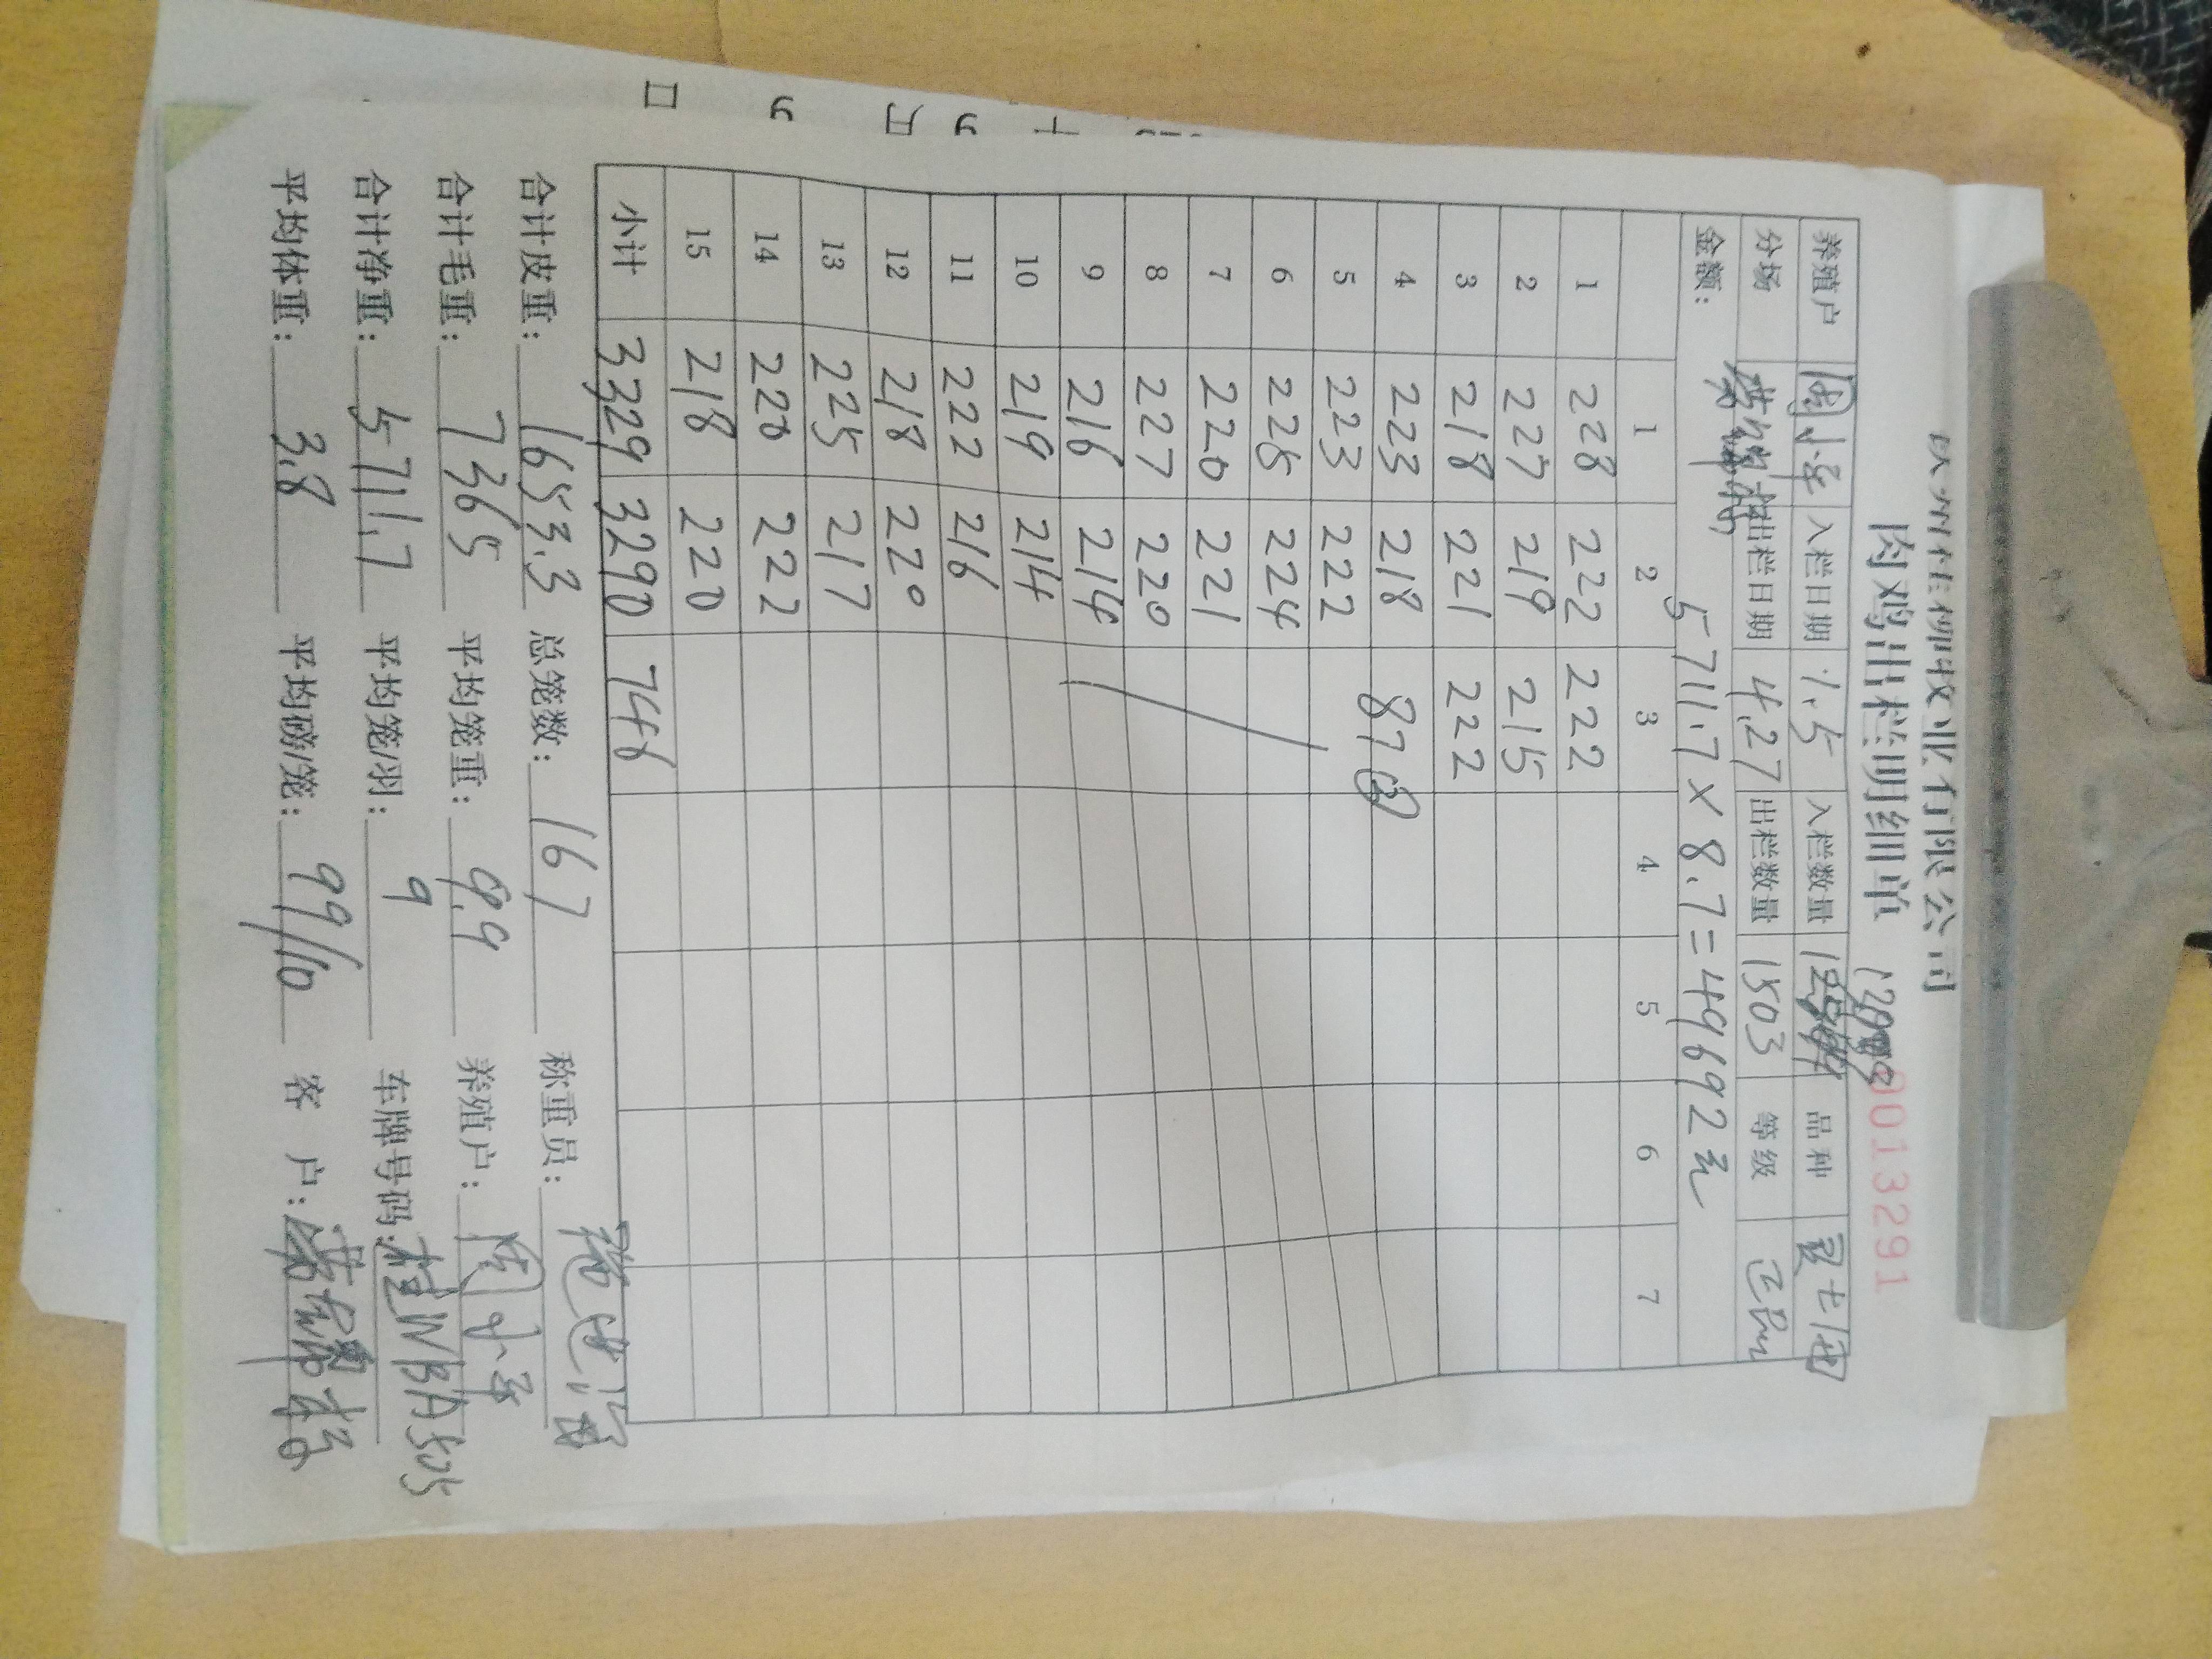 钦州桂柳牧业有限公司
肉鸡出栏明细单
0013291
养殖户 周小军 入栏日期 1.5 入栏数量 品种
分场 出栏日期 4.27 出栏数量 1503 等级
金额： 5711.7×8.7=49692元
1 2 3 4 5 6 7
1 228 222 222
2 227 219 215
3 218 221 222
4 223 218 87
5 223 222
6 225 224
7 220 221
8 227 220
9 216 214
10 219 214
11 222 216
12 218 220
13 225 217
14 220 222
15 218 220
小计 3329 3290 746
合计皮重： 1653.3 总笼数： 167 称重员：
合计毛重： 7365 平均笼重： 9.9 养殖户： 周小军
合计净重： 5711.7 平均笼/羽： 9 车牌号码：
平均体重： 3.8 平均磅/笼： 99/10 客 户：